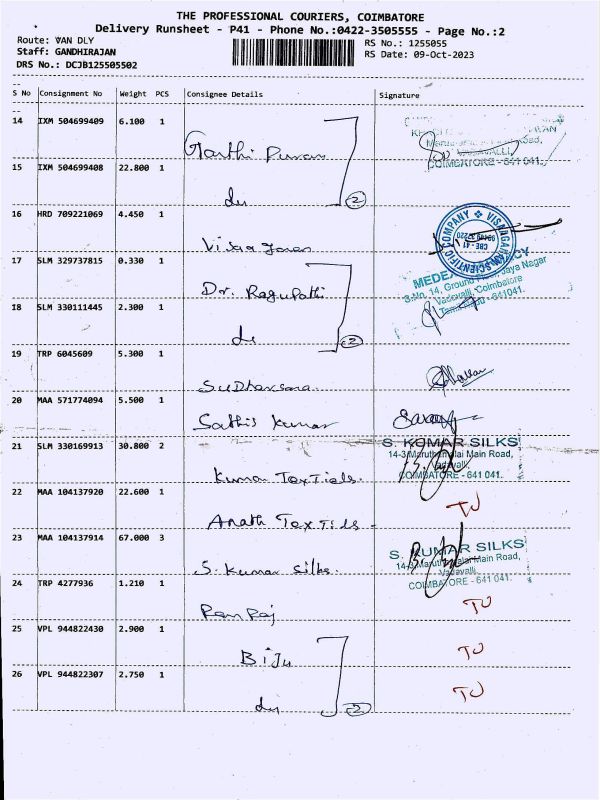 THE PROFESSIONAL COURIERS, COIMBATORE
Delivery Runsheet - P41 - Phone No.:0422-3505555 - Page No.:2
Route: VAN DLY
RS No.: 1255055
Staff: GANDHIRAJAN
RS Date: 09-Oct-2023
DRS No.: DCJB125505502
S No Consignment No Weight PCS Consignee Details Signature
14 IXM 504699409 6.100 1
COIMBATORE - 641 041.
15 IXM 504699408 22.800 1
du 2
16 HRD 709221069 4.450 1
COMPANY SCIENTIFIC
CBE - 41
17 SLM 329737815 0.330 1
Dr. Ragupathi
S.No, 14, Ground Nagar
Vadavalli, Coimbatore
Tamil 641041.
18 SLM 330111445 2.300 1
du 2
19 TRP 6045609 5.300 1
Sudharsana
20 MAA 571774094 5.500 1
Sathis Kumar
21 SLM 330169913 30.800 2
Kumar TexTiels.
S. KUMAR SILKS
14-3 Maruthamalai Main Road,
Vadavalli,
COIMBATORE - 641 041.
22 MAA 104137920 22.600 1
TexTils - TU
23 MAA 104137914 67.000 3
S. Kumar Silks.
S. KUMAR SILKS
14-3 Maruthamalai Main Road,
Vadavalli,
COIMBATORE - 641 041.
24 TRP 4277936 1.210 1
Ram Raj TU
25 VPL 944822430 2.900 1
Biju TU
26 VPL 944822307 2.750 1
du 2 TU